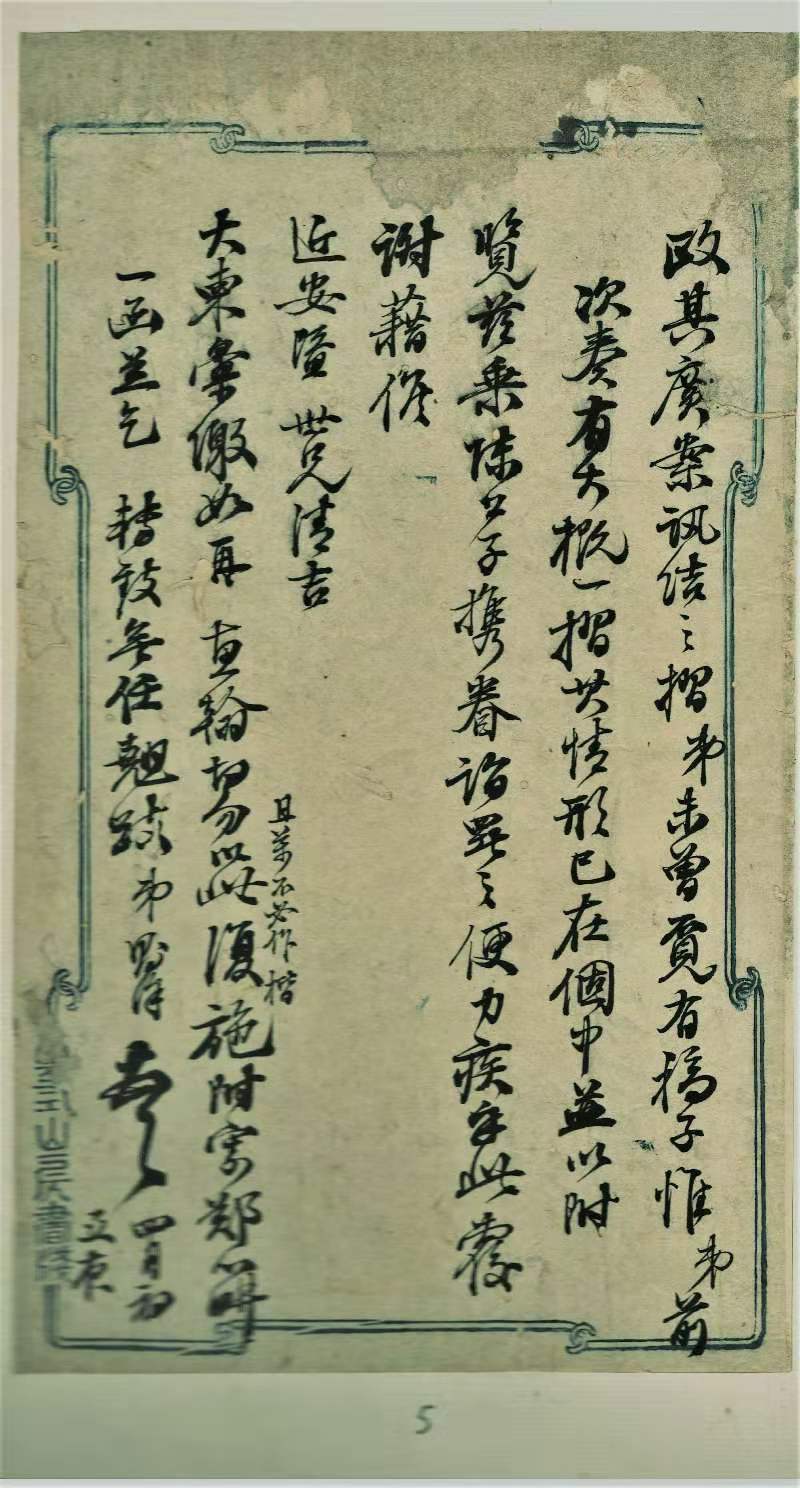 政其廣案訊結之摺弟未曾覓有稿子惟弟前
次奏有大概一摺其情形已在個中並以附
覽茲乘陳公子攜眷詣署之便力疾手此覆
謝藉候
近安暨世兄清吉
大柬彙繳如再惠翰切勿以此復施附寄鄭
且萬不必作楷
一函並乞轉致無任翹跂弟
四月初
五夜
5